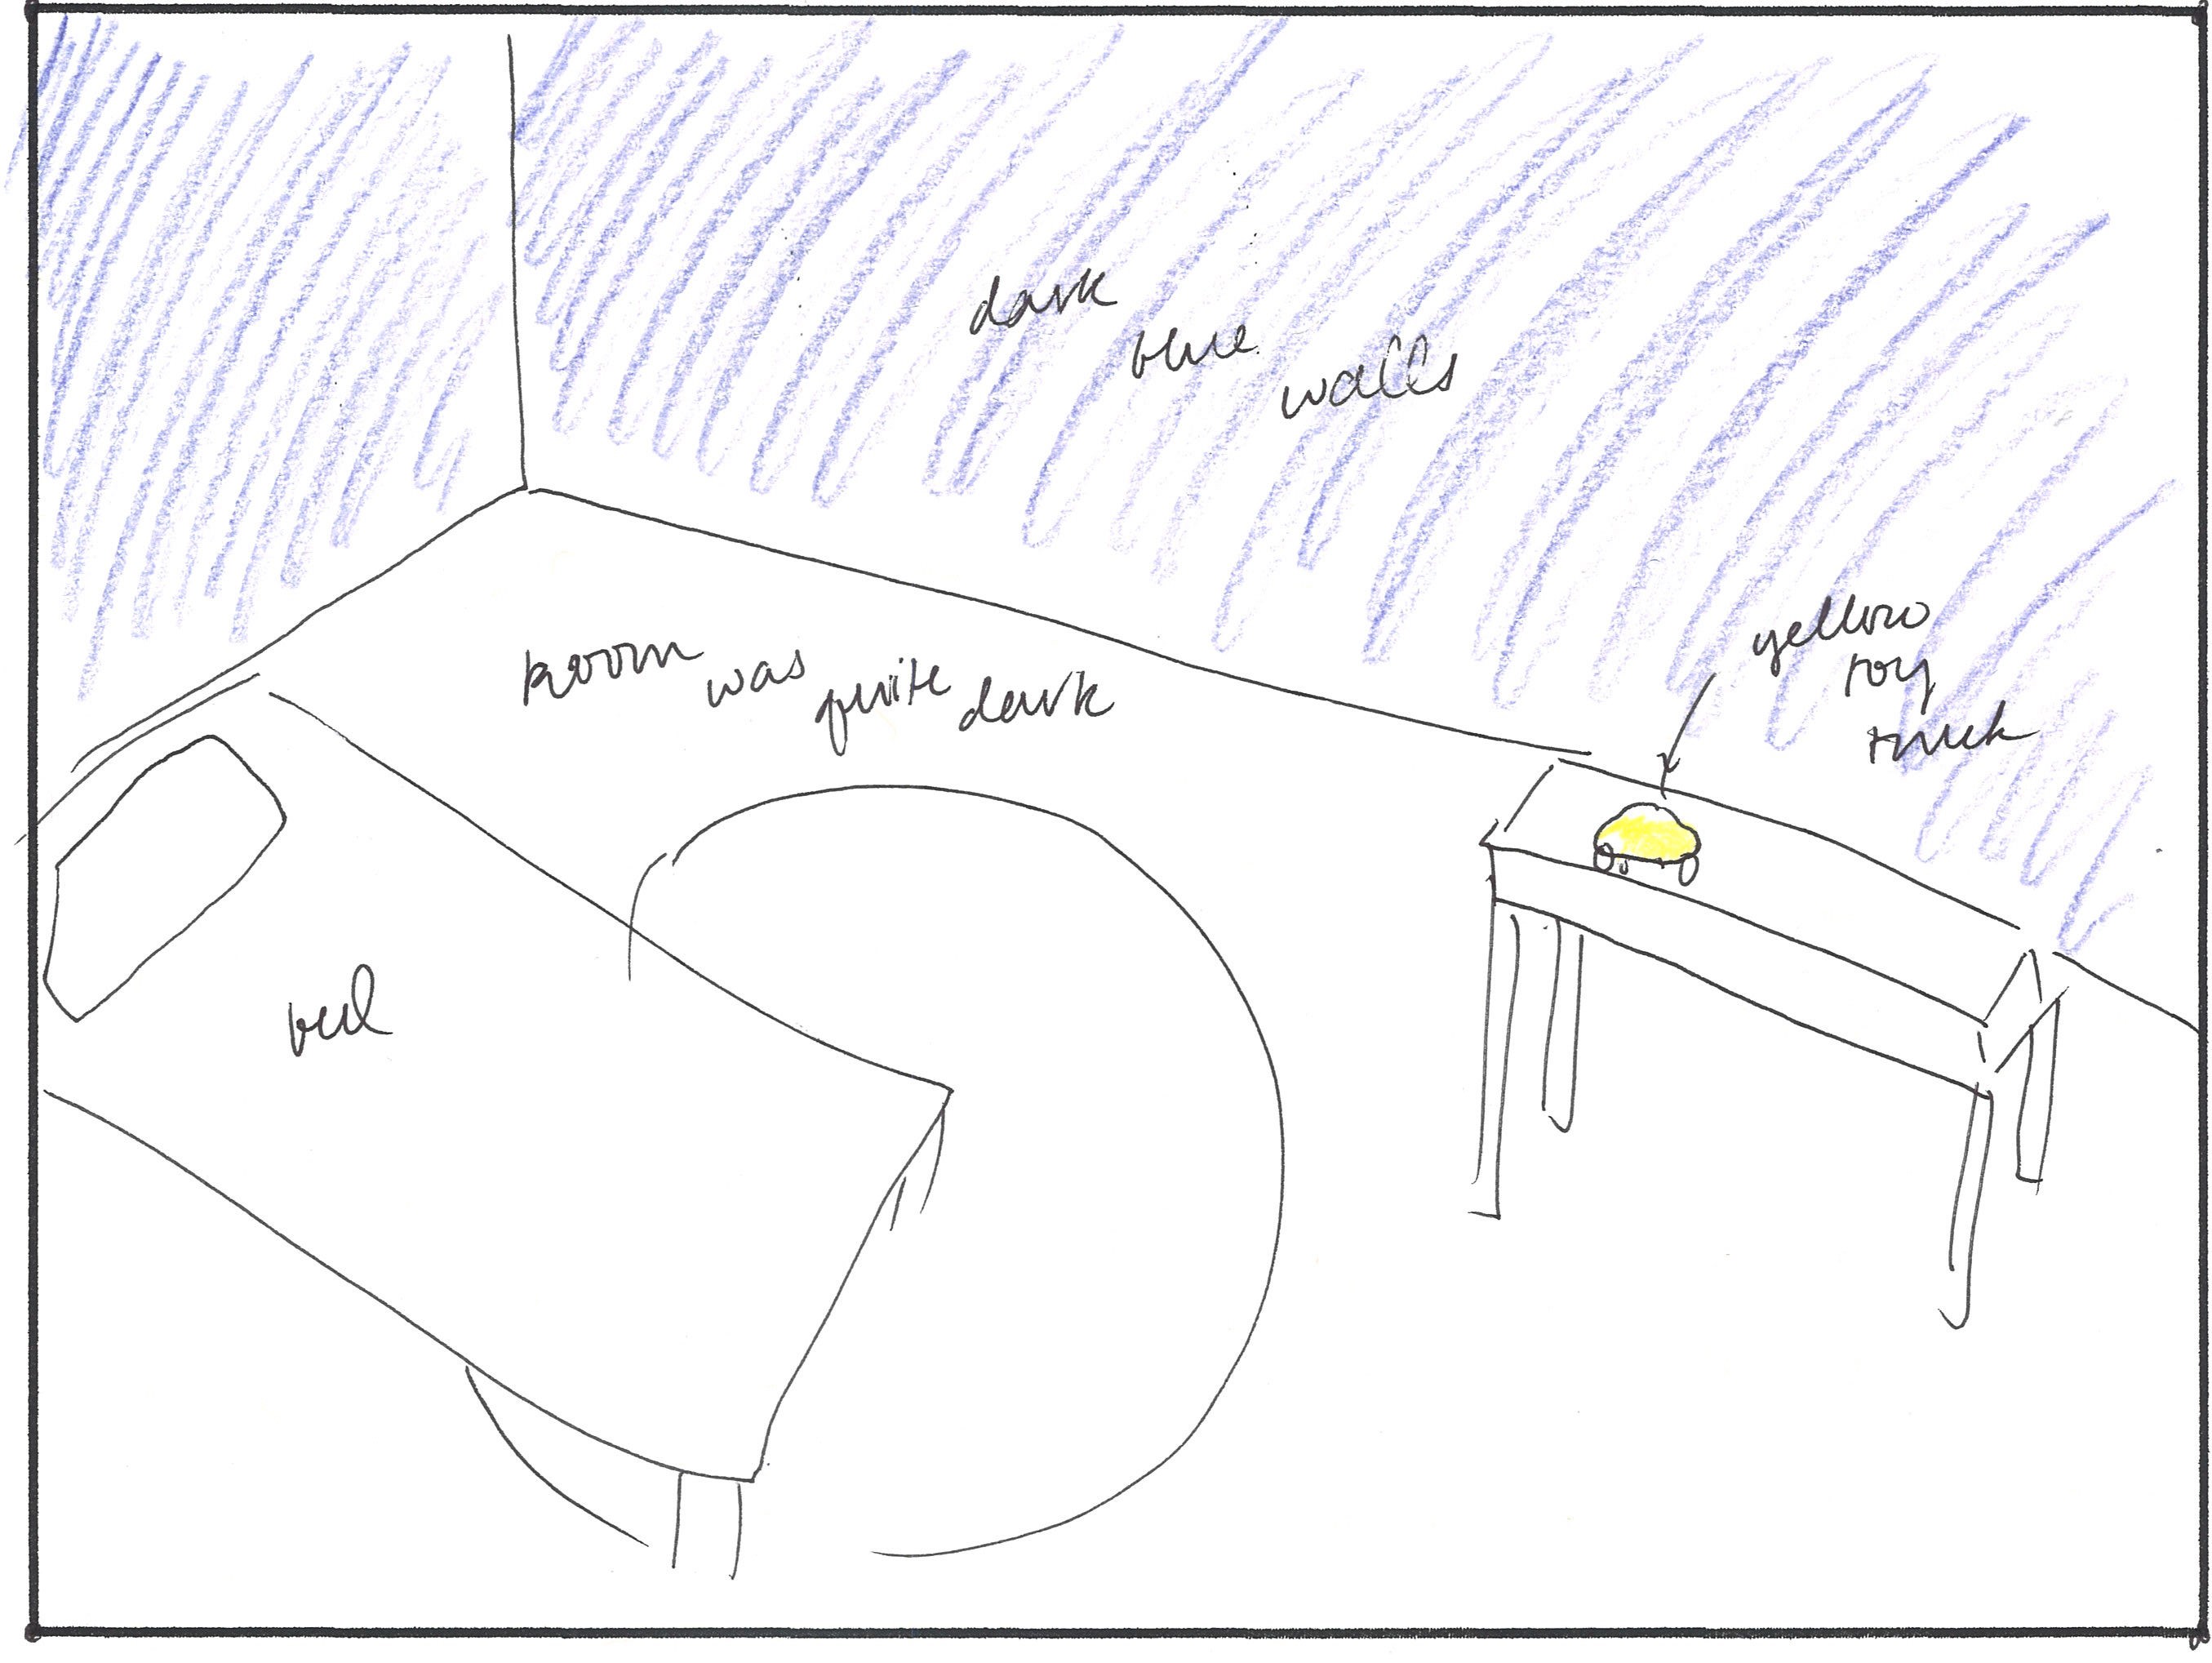 dark blue walls
Room was quite dark
yellow
toy
truck
bed